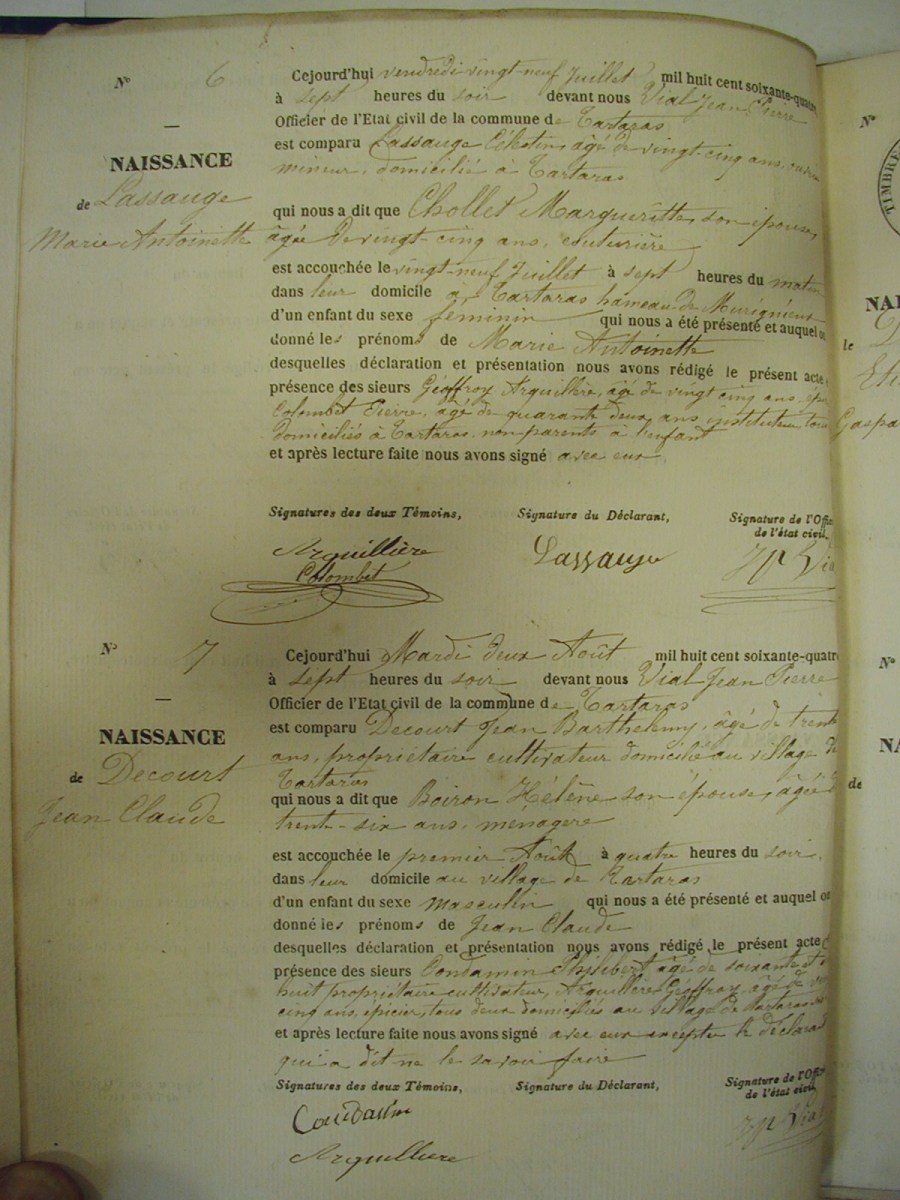 N° 6
NAISSANCE
de Lassauge
Marie Antoinette
Cejourd'hui vendredi vingt-neuf Juillet mil huit cent soixante-quatre
à sept heures du soir devant nous Vial Jean Pierre
Officier de l'Etat civil de la commune de Tartaras
est comparu Lassauge Célestin, âgé de vingt-cinq ans,
mineur, domicilié à Tartaras
qui nous a dit que Chollet Margueritte, son épouse,
âgée de vingt-cinq ans, couturière
est accouchée le vingt-neuf Juillet à sept heures du matin
dans leur domicile à Tartaras hameau de
d'un enfant du sexe féminin qui nous a été présenté et auquel on
donné les prénoms de Marie Antoinette
desquelles déclaration et présentation nous avons rédigé le présent acte
présence des sieurs Geoffroy Arquillière, âgé de vingt cinq ans,
Colombet Pierre, âgé de quarante deux ans, instituteur, tous
domiciliés à Tartaras, non parents à l'enfant
et après lecture faite nous avons signé avec eux.
Signatures des deux Témoins, Signature du Déclarant, Signature de l'Offi
de l'état civil,
Arquillière Lassauge JP Vial
Colombet
N° 7
NAISSANCE
de Decourt
Jean Claude
Cejourd'hui Mardi deux Août mil huit cent soixante-quatre
à sept heures du soir devant nous Vial Jean Pierre
Officier de l'Etat civil de la commune de Tartaras
est comparu Decourt Jean Barthelemy, âgé de trente
ans, propriétaire cultivateur domicilié au village de
Tartaras
qui nous a dit que Boiron Hélène son épouse, âgée de
trente-six ans, ménagère
est accouchée le premier Août à quatre heures du soir,
dans leur domicile au village de Tartaras
d'un enfant du sexe masculin qui nous a été présenté et auquel on
donné les prénoms de Jean Claude
desquelles déclaration et présentation nous avons rédigé le présent acte
présence des sieurs Condamin Philibert âgé de soixante et
huit propriétaire cultivateur, Arquillere Geoffroy, âgé de vingt
cinq ans, épicier, tous deux domiciliés au village de Tartaras
et après lecture faite nous avons signé avec eux excepté le déclarant
qui a dit ne le savoir faire
Signatures des deux Témoins, Signature du Déclarant, Signature de l'Offic
de l'état civil
Condamin JP Vial
Arquilliere
N°
TIMBRE
NAI
le
Gaspa
N°
NA
de